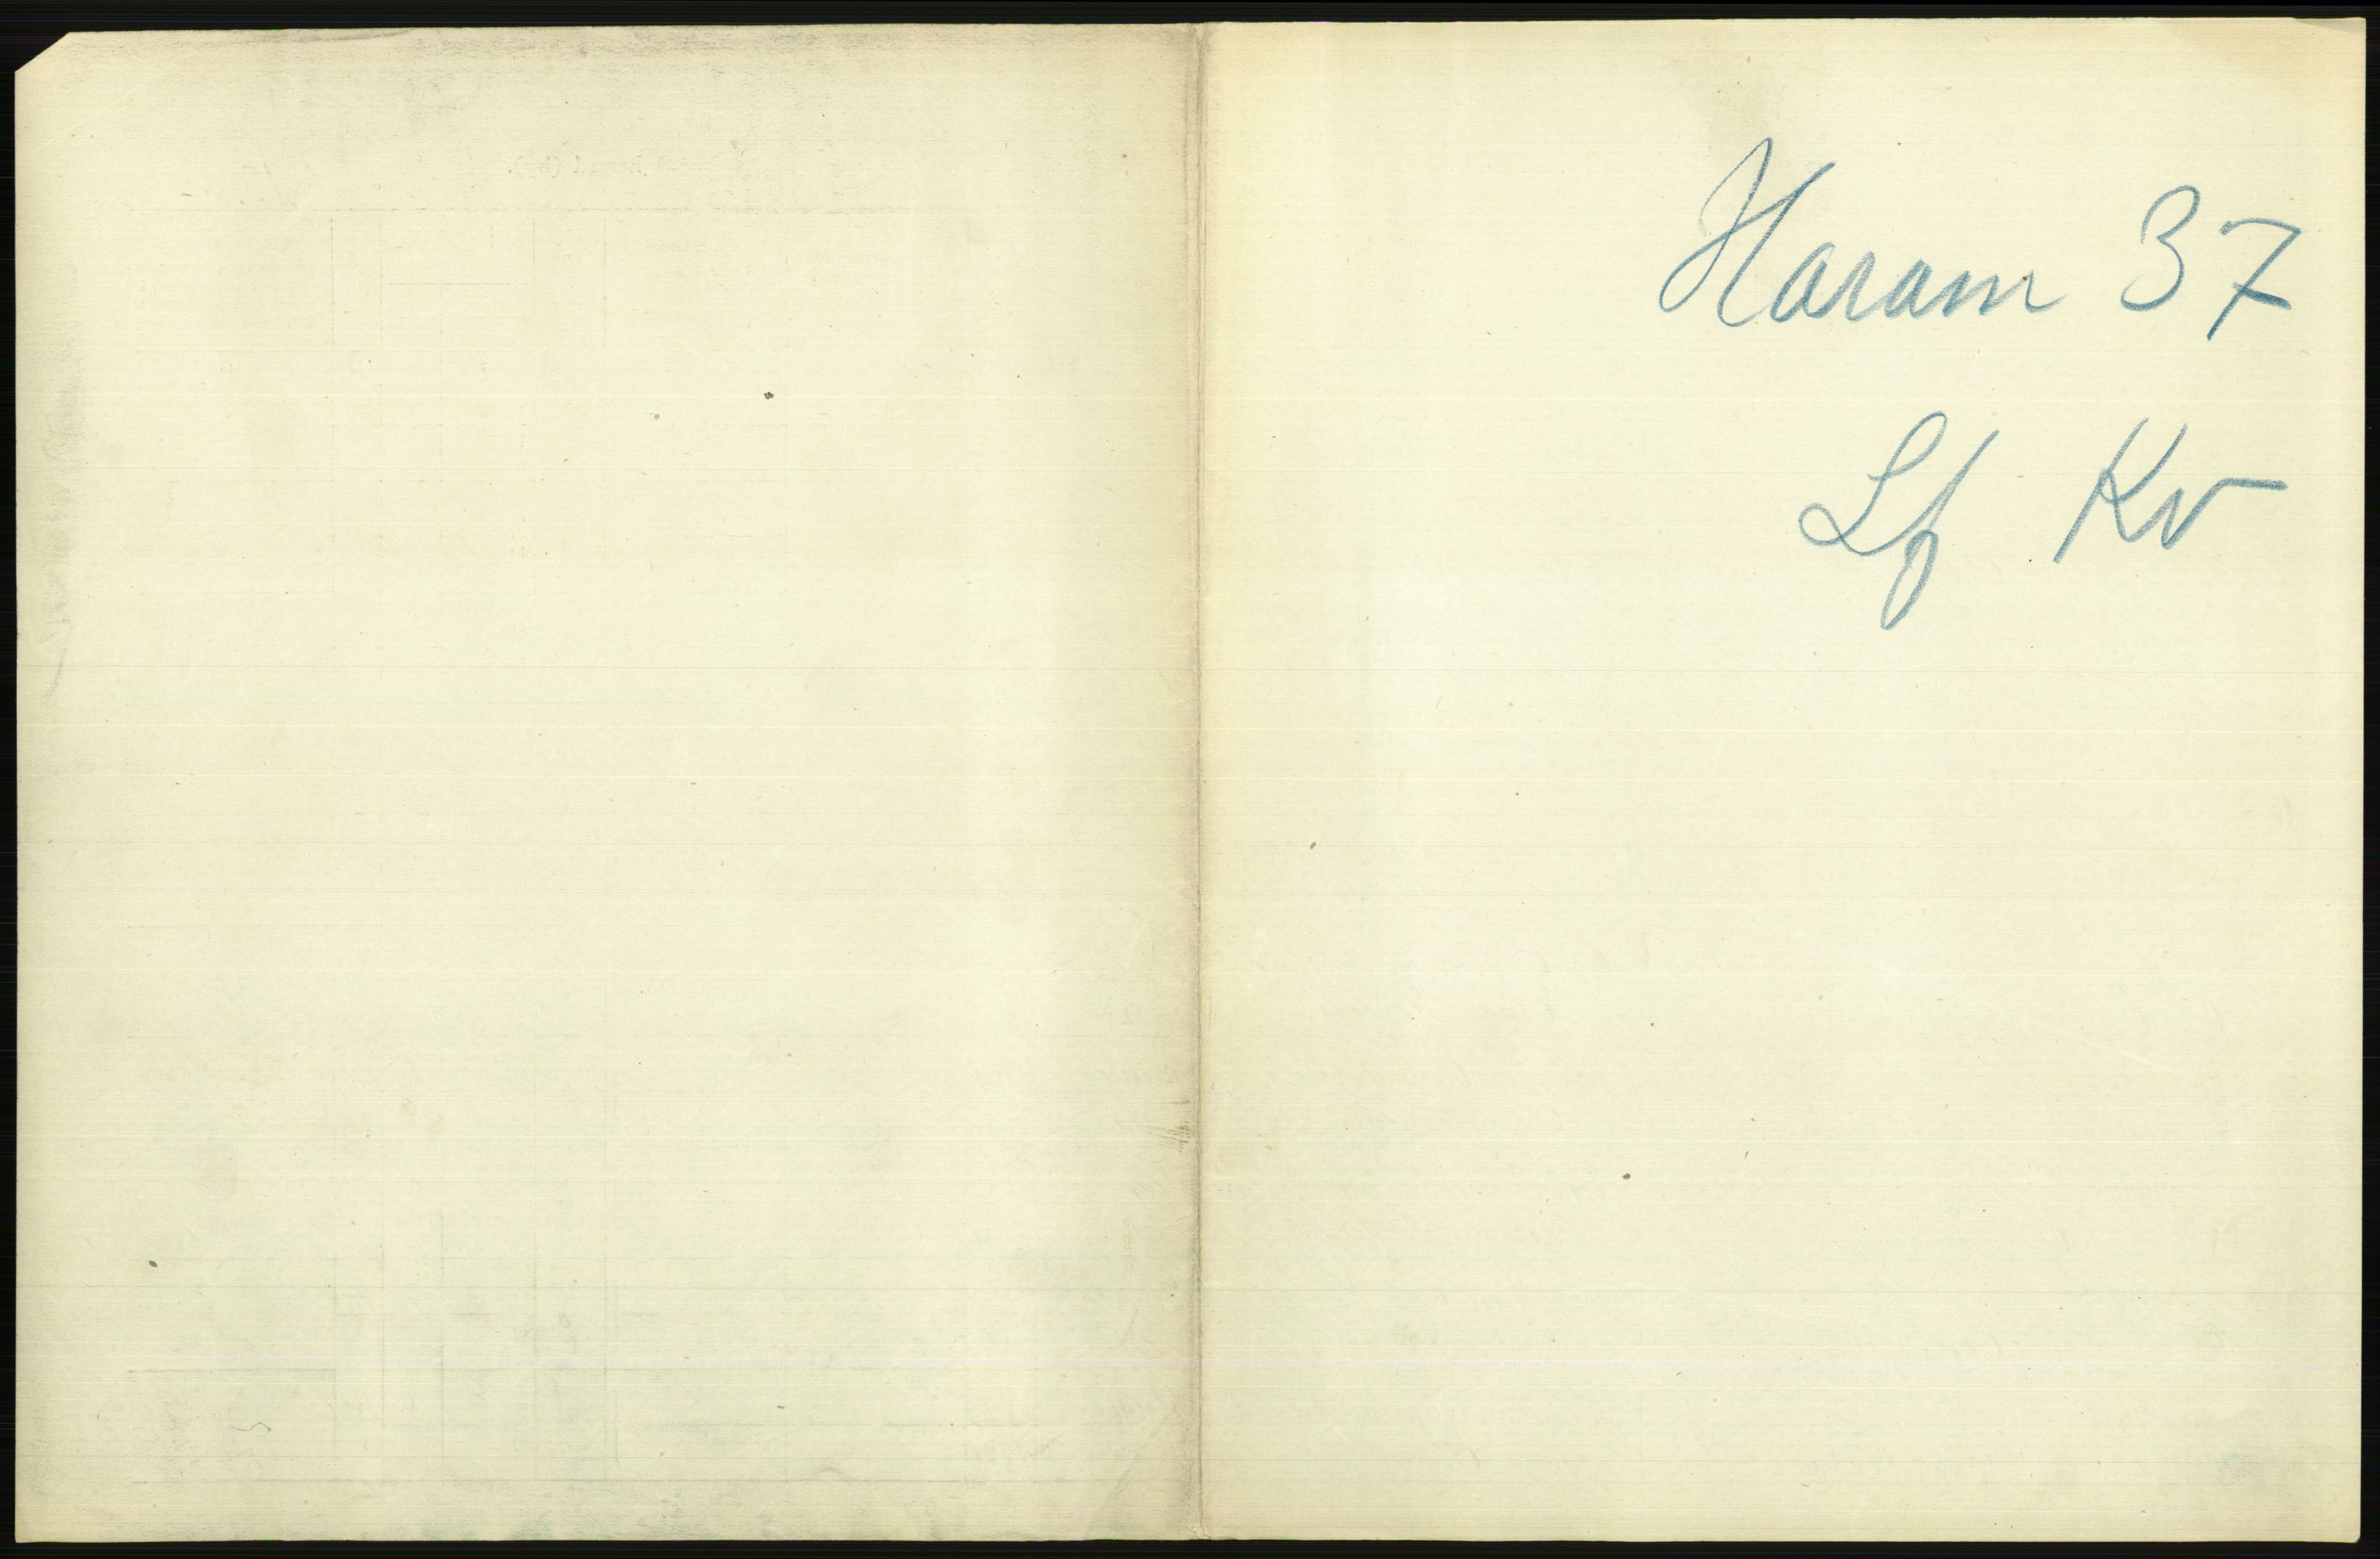 Haram 37
Lf Kv